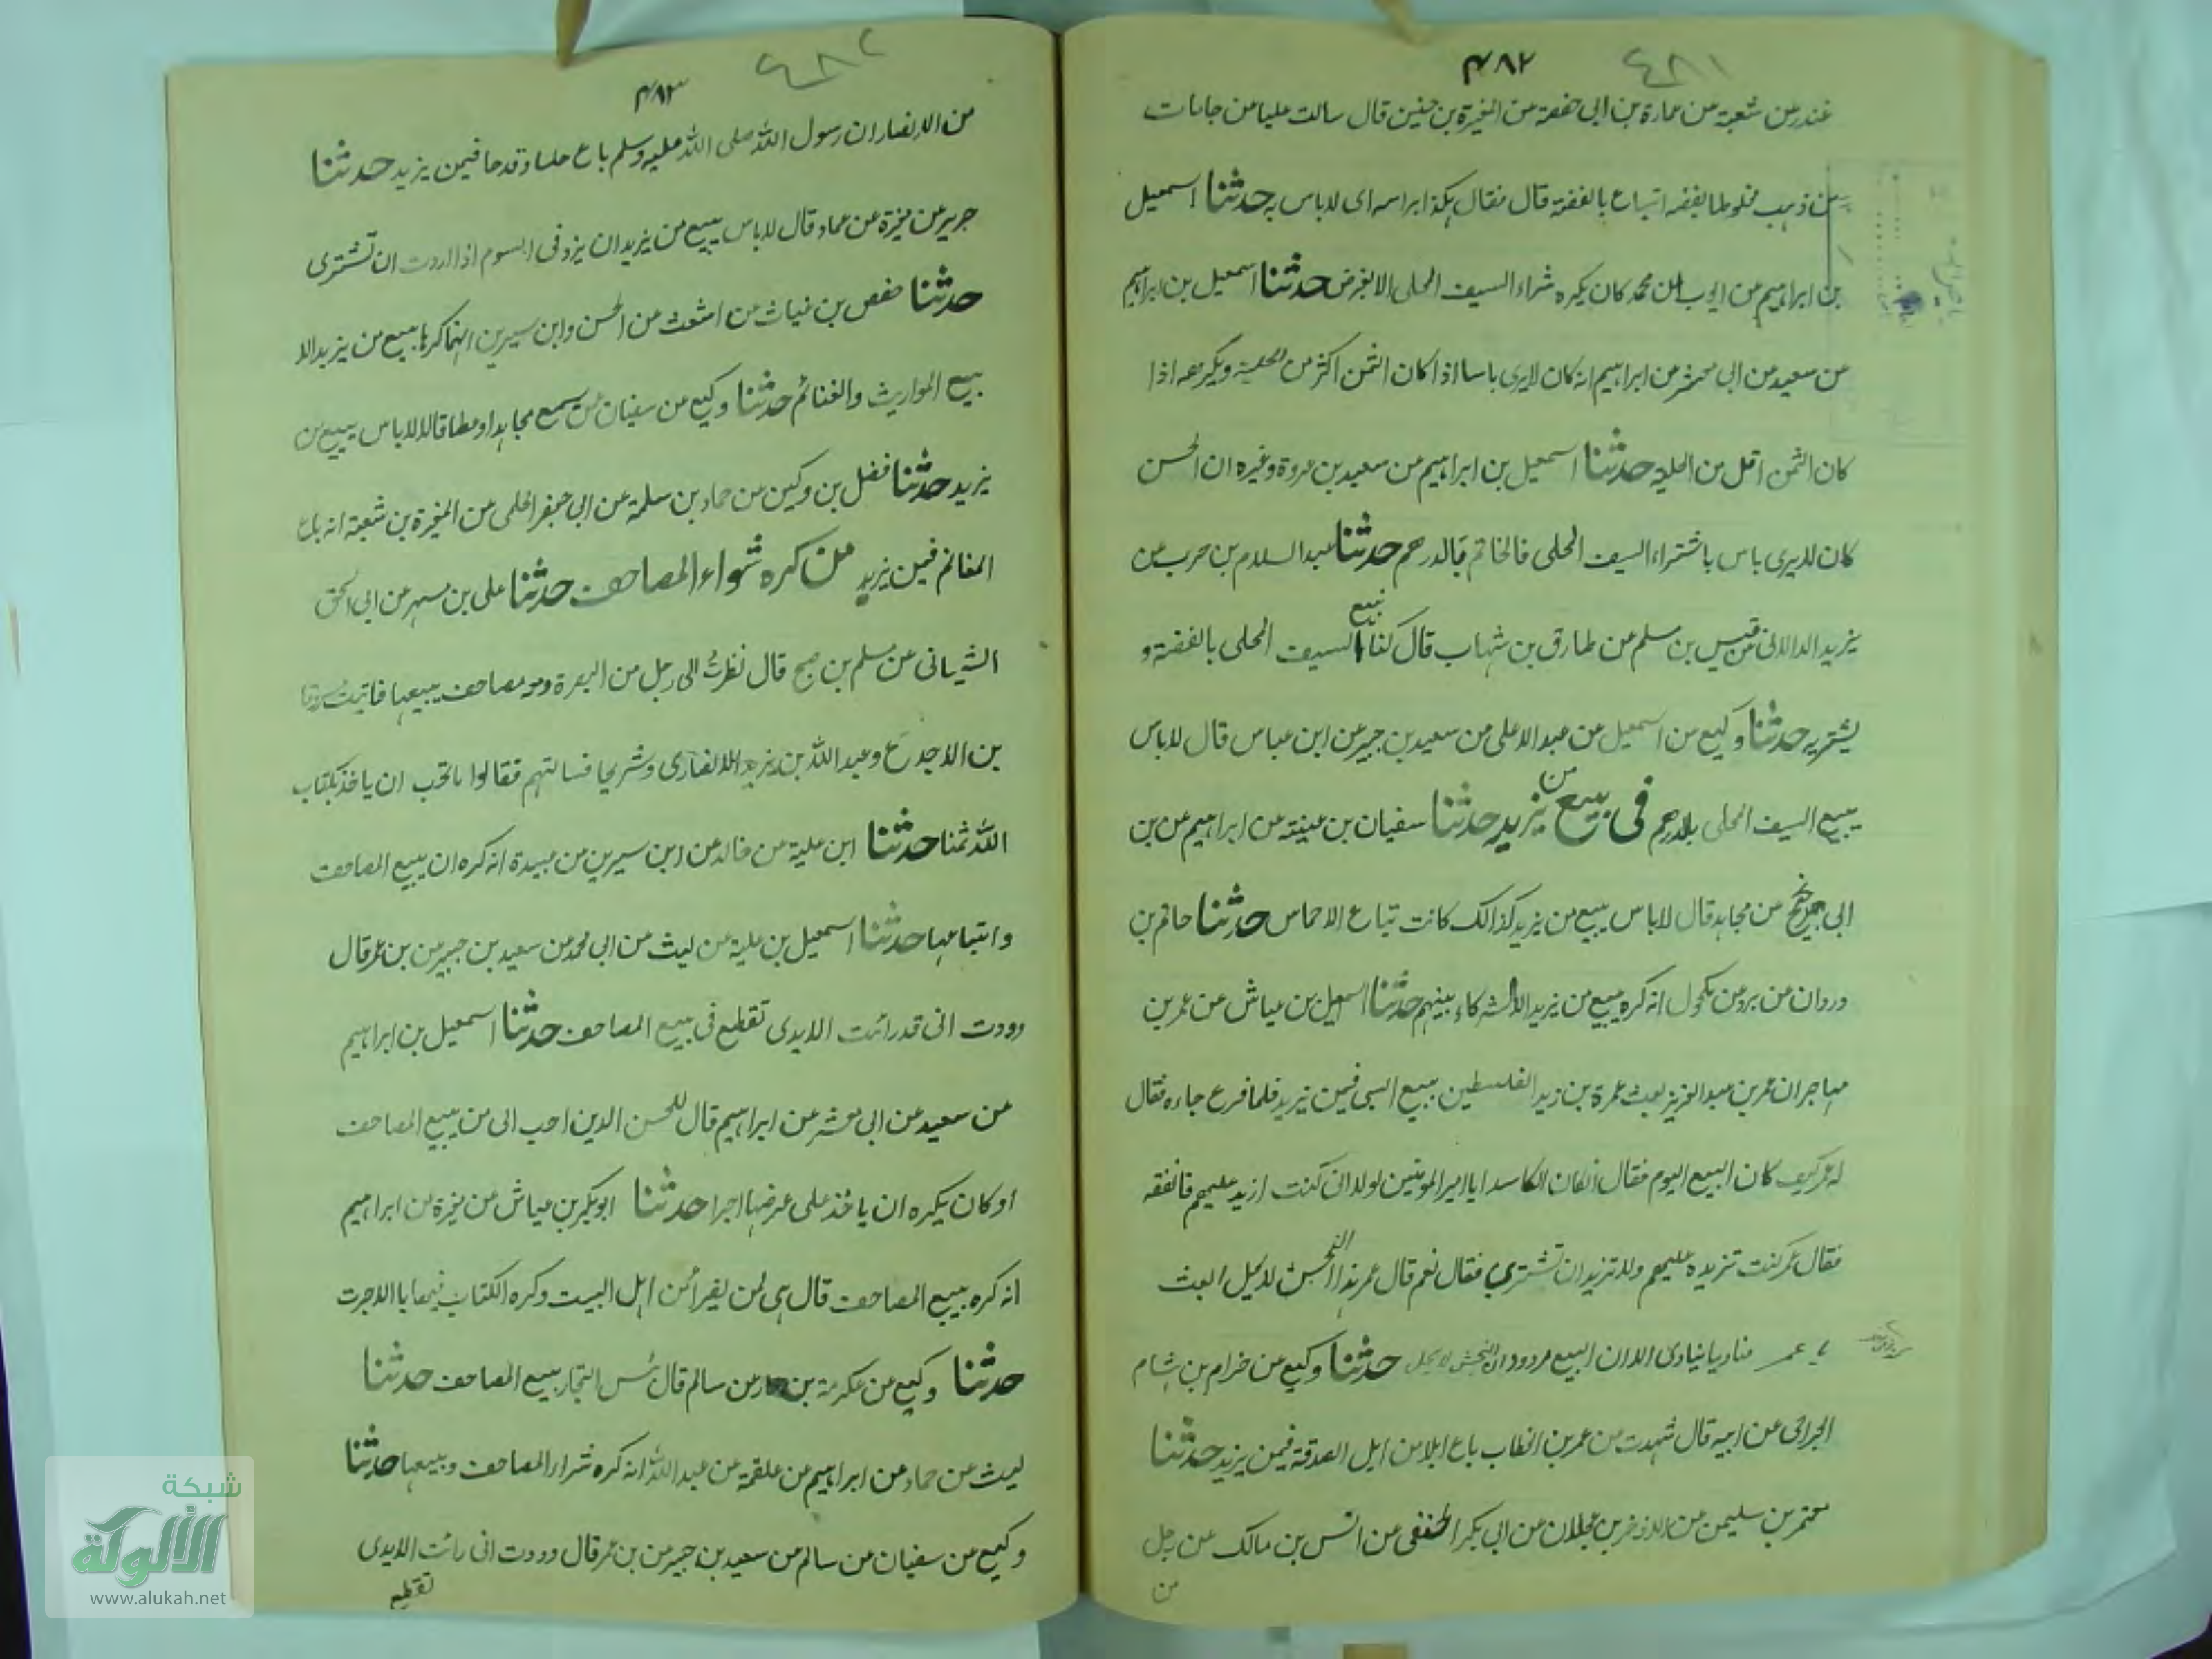 ٤٨١
٤٨٢
غندر عن شعبة عن عمارة بن ابى حفصة عن المغيرة بن حنين قال سالت عليا من جامات
من ذهب مخلوطا بفضه اتباع بالفضة قال فقال هكذا براسه اى لاباس به حدثنا اسمعيل
بن ابراهيم من ايوب عن محمد كان يكره شراء السيف المحلى الابغرض حدثنا اسمعيل بن ابراهيم
عن سعيد عن ابى معشر عن ابراهيم انه كان لايرى باسا اذا كان الثمن اكثر من الحلية ويكرهه اذا
كان الثمن اقل من الحلية حدثنا اسمعيل بن ابراهيم عن سعيد بن عروة وغيره ان الحسن
كان لايرى باس باشتراء السيف المحلى فالخاتم بالدرهم حدثنا عبد السلام بن حرب عن
يزيد الدالانى عن قيس بن مسلم عن طارق بن شهاب قال كنا نبيع السيف المحلى بالفضة و
يشتريه حدثنا وكيع عن اسمعيل عن عبد الاعلى عن سعيد بن جبير عن ابن عباس قال لاباس
ببيع السيف المحلى بالدرهم فى بيع من يزيد حدثنا سفيان بن عينة عن ابراهيم عن بن
ابى نجيح عن مجاهد قال لاباس ببيع من يزيد كذالك كانت تباع الاخماس حدثنا حاتم بن
وردان عن برد عن مكحول انه كره بيع من يزيد الا الشركاء بينهم حدثنا اسمعيل بن عياش عن عمر بن
مهاجر ان عمر بن عبد العزيز بعث عمرة بن زيد الفلسطين يبيع السبى فيمن يزيد فلما فرغ جاءه فقال
له عمر كيف كان البيع اليوم فقال ان كان لكاسدا يا امير المومنين لولا ان كنت ازيد عليهم فانفقه
فقال عمر كنت تزيده عليهم ولا تريد ان تشترى فقال نعم قال عمر هذا النجش لايحل ابعث
يا عمر مناديا ينادى الا ان البيع مردود ان النجش لا يحل حدثنا وكيع عن خرام بن هشام
الجزاعى عن ابيه قال شهدت من عمر بن الخطاب باع ابلا من ابل الصدقة فيمن يزيد حدثنا
معتمر بن سليمن عن الاخضر بن عجلان عن ابى بكر الحنفى عن انس بن مالك عن رجل
من
٤٨٢
٤٨٣
من الانصار ان رسول الله صلى الله عليه وسلم باع حلسا وقدحا فيمن يزيد حدثنا
جرير عن مغيرة عن حماد قال لاباس ببيع من يزيد ان يزد فى السوم اذا اردت ان تشترى
حدثنا حفص بن غياث عن اشعث عن الحسن وابن سيرين انهما كرها بيع من يزيد الا
بيع المواريث والغنائم حدثنا وكيع عن سفيان عمن سمع مجاهدا وعطا قالا لاباس ببيع من
يزيد حدثنا فضل بن وكين عن حماد بن سلمة عن ابى جعفر الخطمى عن المغيرة بن شعبة انه باع
المغانم فيمن يزيد من كره شراء المصاحف حدثنا على بن مسهر عن ابى اسحق
الشيبانى عن مسلم بن صبيح قال نظرت الى رجل من البصرة ومعه مصاحف يبيعها فاتيت مسروقا
بن الاجدع وعبد الله بن يزيد الانصارى وشريحا فسالتهم فقالوا مانحب ان ياخذ بكتاب
الله ثمنا حدثنا ابن علية عن خالد عن ابن سيرين عن عبيدة انه كره ان يبيع المصاحف
وابتياعها حدثنا اسمعيل بن علية عن ليث عن ابى محمد عن سعيد بن جبير عن بن عمر قال
وددت انى قد رائت الايدى تقطع فى بيع المصاحف حدثنا اسمعيل بن ابراهيم
عن سعيد عن ابى معشر عن ابراهيم قال للحسن الدين احب الى من يبيع المصاحف
او كان يكره ان ياخذ على عرضها اجرا حدثنا ابو بكر بن عياش عن مغيرة عن ابراهيم
انه كره بيع المصاحف قال هى لمن يقرأ من اهل البيت وكره الكتاب فيها بالاجرت
حدثنا وكيع عن عكرمة بن عمار عن سالم قال بئس التجار بيع المصاحف حدثنا
ليث عن حماد عن ابراهيم عن علقمة عن عبد الله انه كره شراء المصاحف وبيعها حدثنا
وكيع عن سفيان عن سالم عن سعيد بن جبير عن بن عمر قال وددت انى رائت الايدى
تقطع
شبكة
الألوكة
www.alukah.net